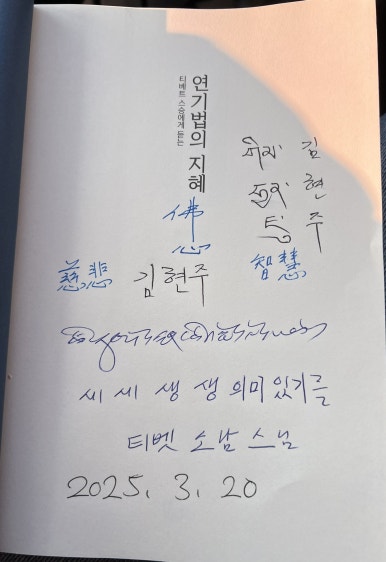 티베트 스승에게 듣는
연기법의 지혜
김
현
주
佛心
慈悲
김현주
智慧
세세생생 의미있기를
티벳 소남 스님
2025. 3. 20